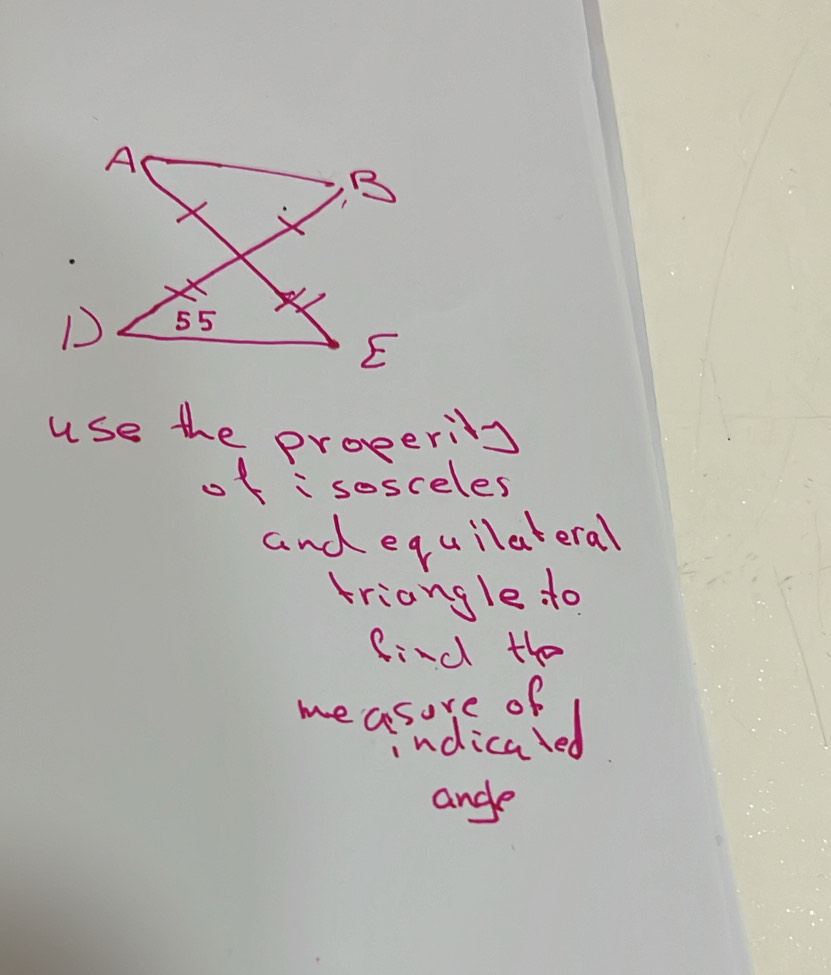 A
B
D
55
E
use the properity
of isosceles
and equilateral
triangle to
find the
measure of
indicated
angle